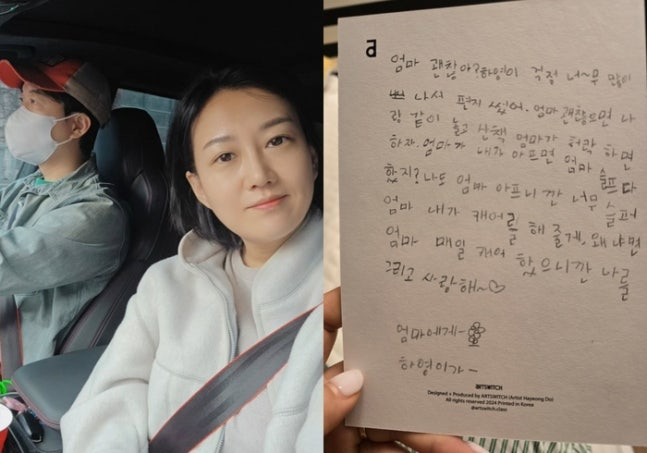 a
엄마 괜찮아? 하영이 걱정 너~무 많이
나서 편지 썼어. 엄마 괜찮으면 나
랑 같이 놀고 산책 엄마가 허락 하면
하자. 엄마가 내가 아프면 엄마 슬프다
했지? 나도 엄마 아프니깐 너무 슬퍼
엄마 내가 캐어를 해 줄게. 왜냐면
엄마 매일 캐어 했으니깐 나를
그리고 사랑해~♡
엄마에게-
하영이가-
ARTSWITCH
Designed + Produced by ARTSWITCH (Artist Hayeong Do)
All rights reserved 2024 Printed in Korea
@artswitch.class